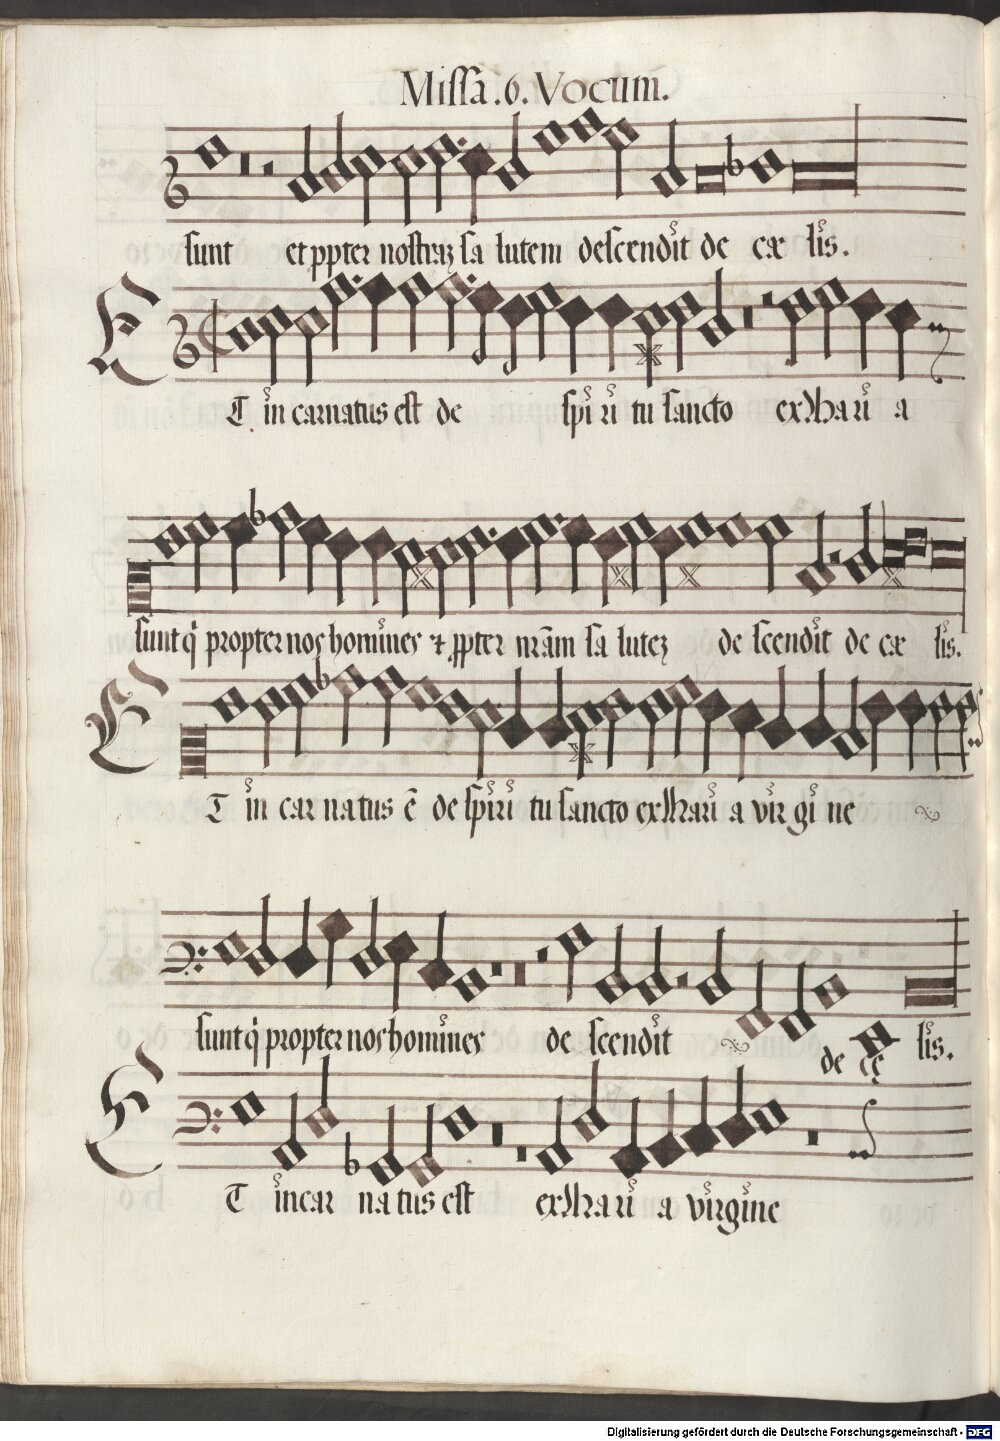 Missa .6. Vocum.
sunt et ppter nostraȝ sa lutem descendit de cæ lis.
ET in carnatus est de spiri tu sancto ex Mari a
sunt q̇ propter nos homines & ppter nr̄am sa luteȝ de scendit de cæ lis.
ET in car natus ē de spiri tu sancto ex Mari a vir gi ne
sunt q̇ propter nos homines de scendit
de cę lis.
ET incar na tus est ex Mari a virgine
Digitalisierung gefördert durch die Deutsche Forschungsgemeinschaft - DFG